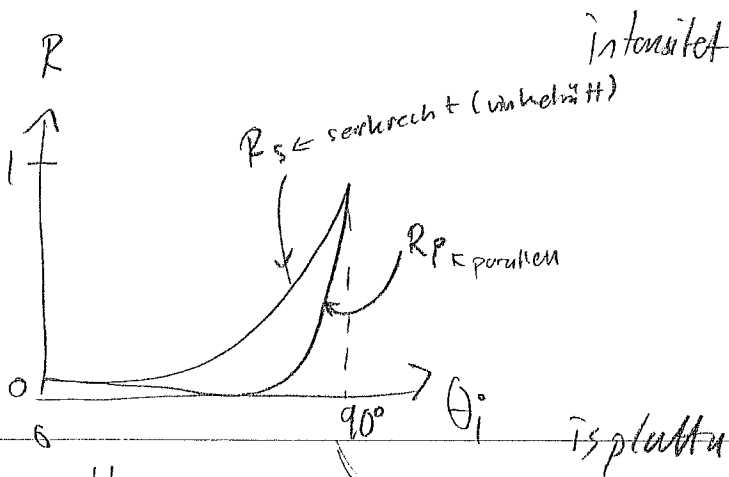 intensitet
R
R s ← senkrecht (vinkelrätt)
1
R p ← parallell
0
0 90° θi
isplatta